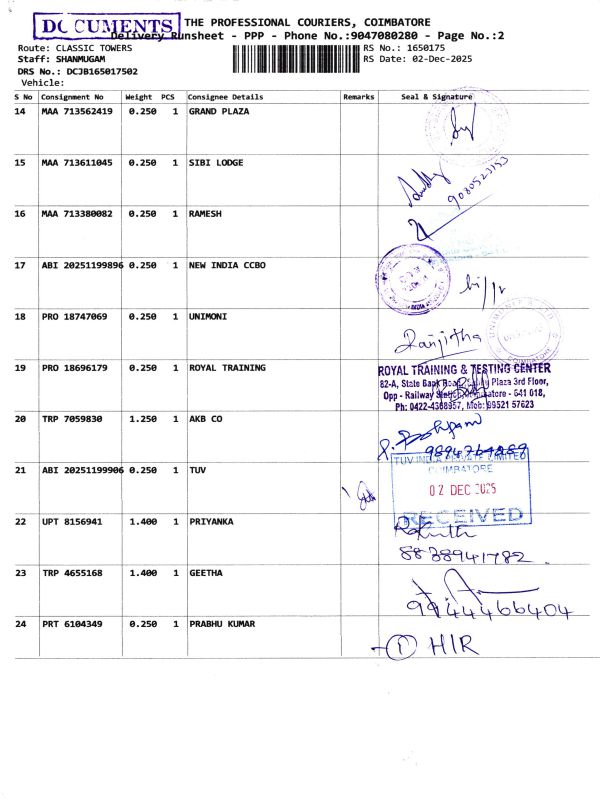 DOCUMENTS
THE PROFESSIONAL COURIERS, COIMBATORE
Delivery Runsheet - PPP - Phone No.:9047080280 - Page No.:2
Route: CLASSIC TOWERS
RS No.: 1650175
Staff: SHANMUGAM
RS Date: 02-Dec-2025
DRS No.: DCJB165017502
Vehicle:
S No Consignment No Weight PCS Consignee Details Remarks Seal & Signature
14 MAA 713562419 0.250 1 GRAND PLAZA
15 MAA 713611045 0.250 1 SIBI LODGE
9080523153
16 MAA 713380082 0.250 1 RAMESH
17 ABI 20251199896 0.250 1 NEW INDIA CCBO
18 PRO 18747069 0.250 1 UNIMONI
Ranjitha
COIMBATORE
19 PRO 18696179 0.250 1 ROYAL TRAINING
ROYAL TRAINING & TESTING CENTER
82-A, State Bank Road, Plaza 3rd Floor,
Opp - Railway Station, Coimbatore - 641 018,
Ph: 0422-4368957, Mob: 99521 57623
20 TRP 7059830 1.250 1 AKB CO
21 ABI 20251199906 0.250 1 TUV
TUV INDIA PRIVATE LIMITED
COIMBATORE
02 DEC 2025
RECEIVED
22 UPT 8156941 1.400 1 PRIYANKA
8838941782
23 TRP 4655168 1.400 1 GEETHA
9944466404
24 PRT 6104349 0.250 1 PRABHU KUMAR
1 HIR